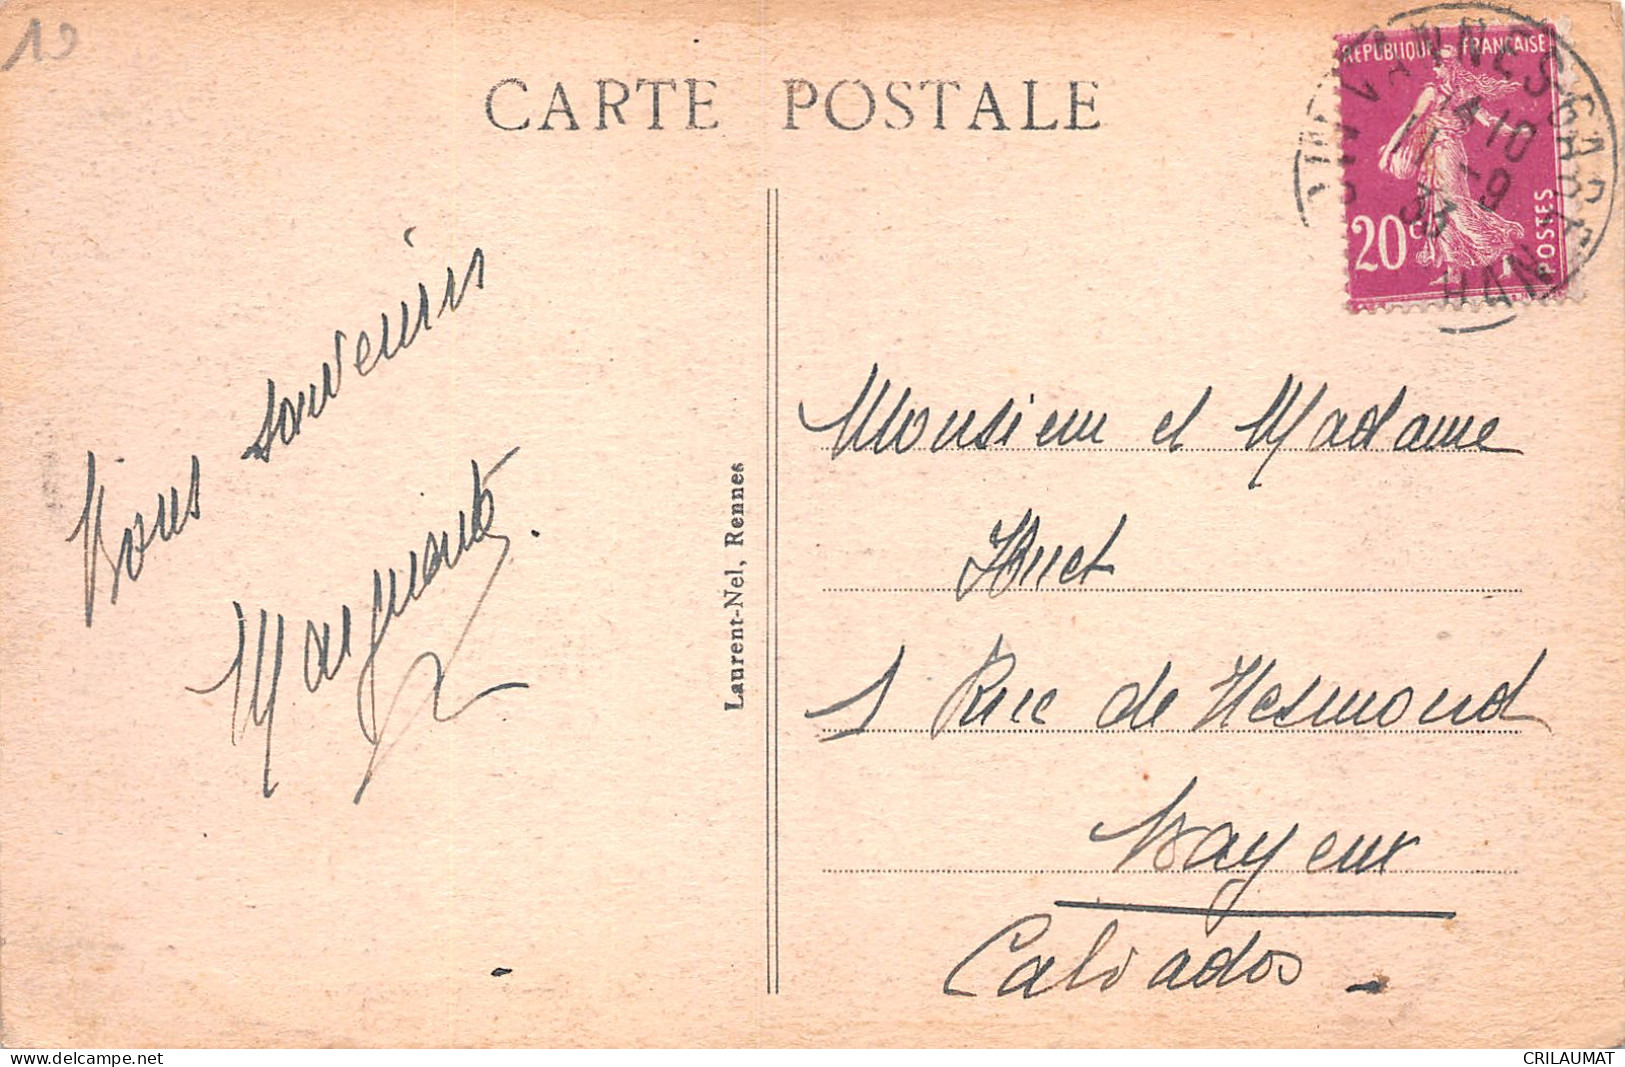 10
CARTE POSTALE
RÉPUBLIQUE FRANÇAISE
20c
POSTES
VANNES GARE
11 -9
33
Bons souvenirs
Marguerite.
Laurent-Nel, Rennes
Monsieur et Madame
Huet
1 Rue de Nesmond
Bayeux
Calvados -
http://www.delcampe.net
CRILAUMAT